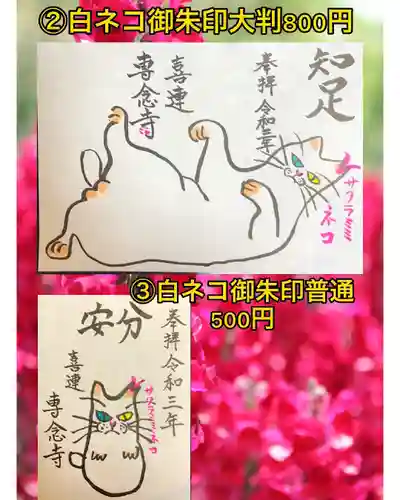 ②白ネコ御朱印大判800円
知足
奉拝 令和三年
喜連
専念寺
サクラミミ
ネコ
③白ネコ御朱印普通
500円
安分
奉拝 令和三年
喜連
専念寺
サクラミミネコ